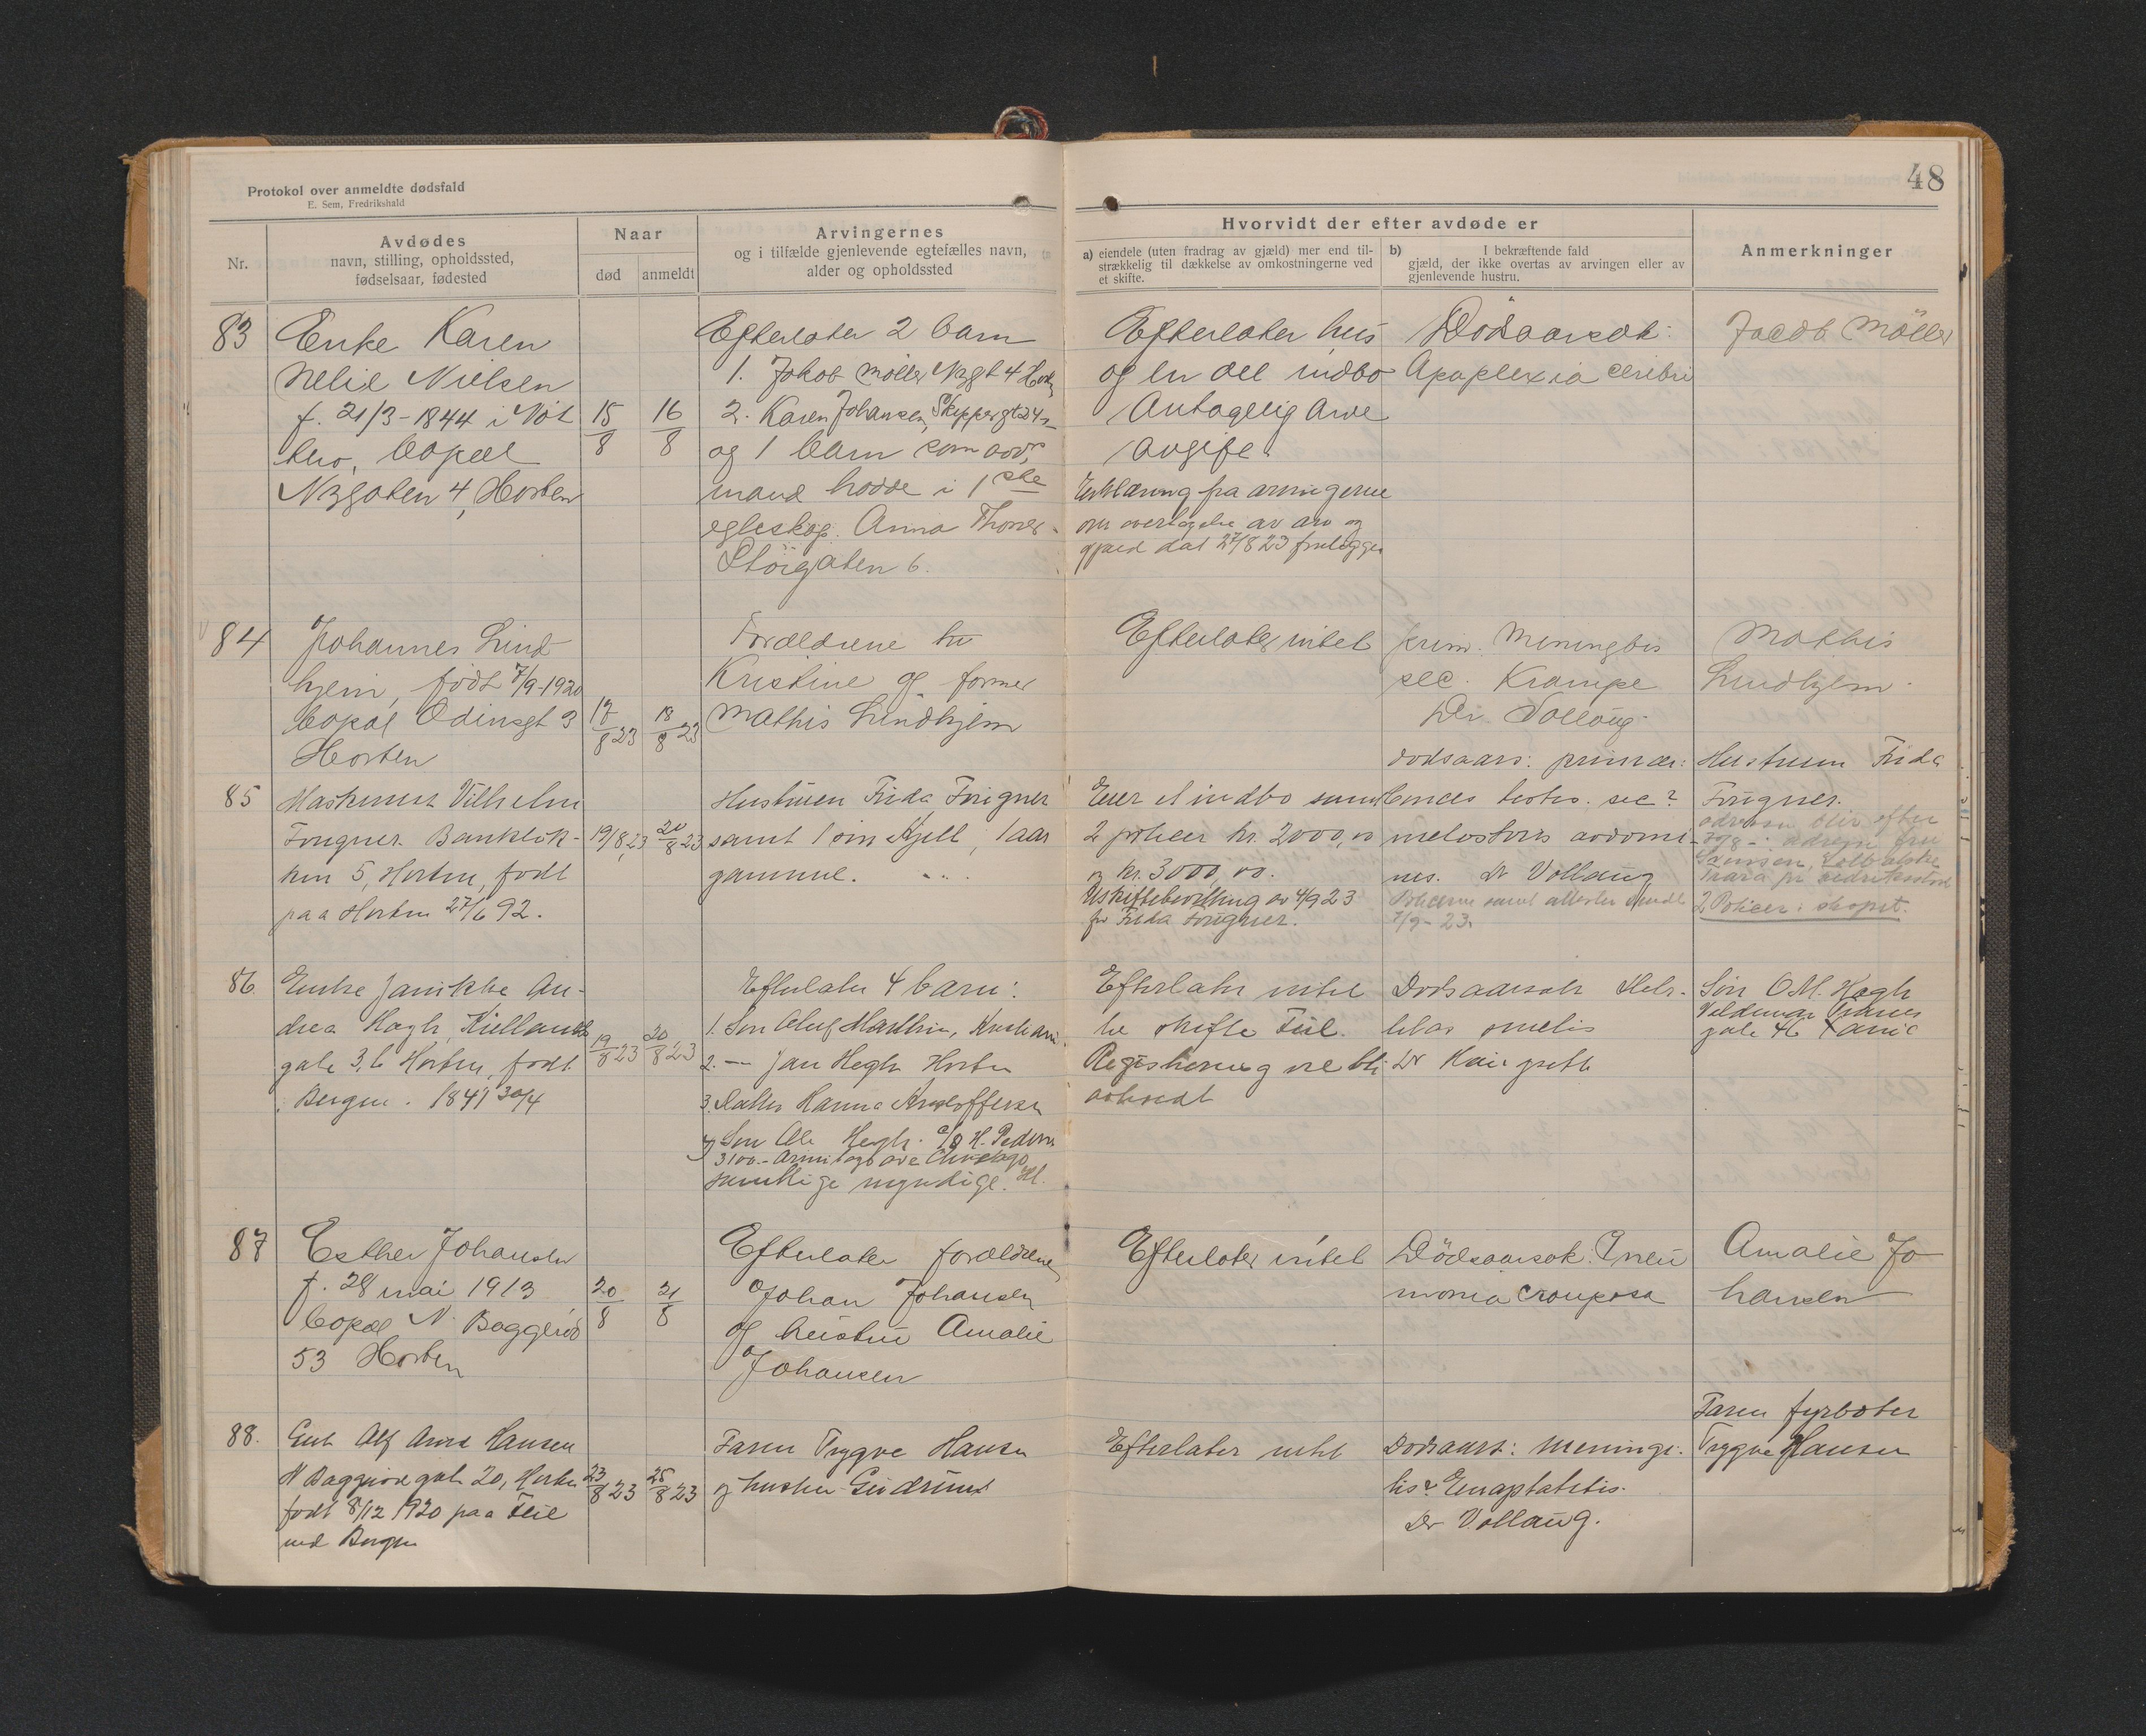 48
Protokol over anmeldte dødsfald
E. Sem, Fredrikshald
Nr.
Avdødes
navn, stilling, opholdssted,
fødselsaar, fødested
Naar
død
anmeldt
Arvingernes
og i tilfælde gjenlevende egtefælles navn,
alder og opholdssted
Hvorvidt der efter avdøde er
a) eiendele (uten fradrag av gjæld) mer end til-
strækkelig til dækkelse av omkostningerne ved
et skifte.
b) I bekræftende fald
gjæld, der ikke overtas av arvingen eller av
gjenlevende hustru.
Anmerkninger
83
Enke Karen
Nelie Nielsen
f. 21/3-1844 i
bopæl
Nygaten 4, Horten
15/8
16/8
Efterlater 2 barn
1. Jakob Møller Nygt 4 Horten
2. Karen Johansen, Skippergt 24
og 1 barn som avd.
mand hadde i 1ste
egteskap. Anna
Storgaten 6.
Efterlater hus
og en del indbo
Antagelig Arve
avgift.
Erklæring fra arvingerne
om overtagelse av arv og
gjæld dat 27/8 23 fremlegges
Dødsaarsak:
Apoplexia cerebri
Jacob Möller
84
Johannes Lind
hjem, født 7/9-1920
bopæl Odinsgt 3
Horten
17/8 23
18/8 23
Forældrene
Kristine og former
Mathis Lindhjem
Efterlater intet
prim. Meningtis
sec. Krampe
Dr. Vollaug
Mathis
Lindhjem
85
Vilhelm
Fougner Bankløk-
ken 5, Horten, født
paa Horten 27/6 92.
19/8 23
20/8 23
Hustruen Frida Fougner
samt 1 søn Kjell, 1 aar
gammel.
Eier et indbo samt
2 policer kr. 2000,00
og kr. 3000,00.
Uskiftebevilling av 4/9 23
for Frida Fougner.
dødsaars: primær:
sec?
nes. Dr Vollaug
Policerne samt attester sendt
7/9-23.
Hustruen Frida
Fougner.
2 Policer i skapet.
86.
Enke Janikke An-
drea Hagh, Kiellands
gate 3, b Horten, født
Bergen. 1841 30/4
19/8 23
20/8 23
Efterlater 4 barn:
1. Søn Oluf Marthin, Kristiania
2. — Jan Hegh Horten
3. Datter Hanna Kristoffersen
4 Søn Ole Hegh. c/o H. Pedersen
3100.- Armitage ave Chicago
samtlige myndige.
Efterlater intet
Registrering vil bli
avholdt
Dødsaarsak
Søn O.M. Hagh
87
Esther Johansen
f. 28 mai 1913
bopæl N. Baggerød
53 Horten
20/8
21/8
Efterlater forældrene
Johan Johansen
og hustru Amalie
Johansen
Efterlater intet
Dödsaarsak. Pneu
monia crouposa
Amalie Jo
hansen
88.
Gut Alf Arne Hansen
N Baggerødgate 20, Horten
født 8/12 1920 paa
ved Bergen
23/8 23
25/8 23
Faren Trygve Hansen
og hustru Gudrun
Efterlater intet
Dødsaars: Meningi-
tis?
Dr Vollaug.
Faren fyrbøter
Trygve Hansen